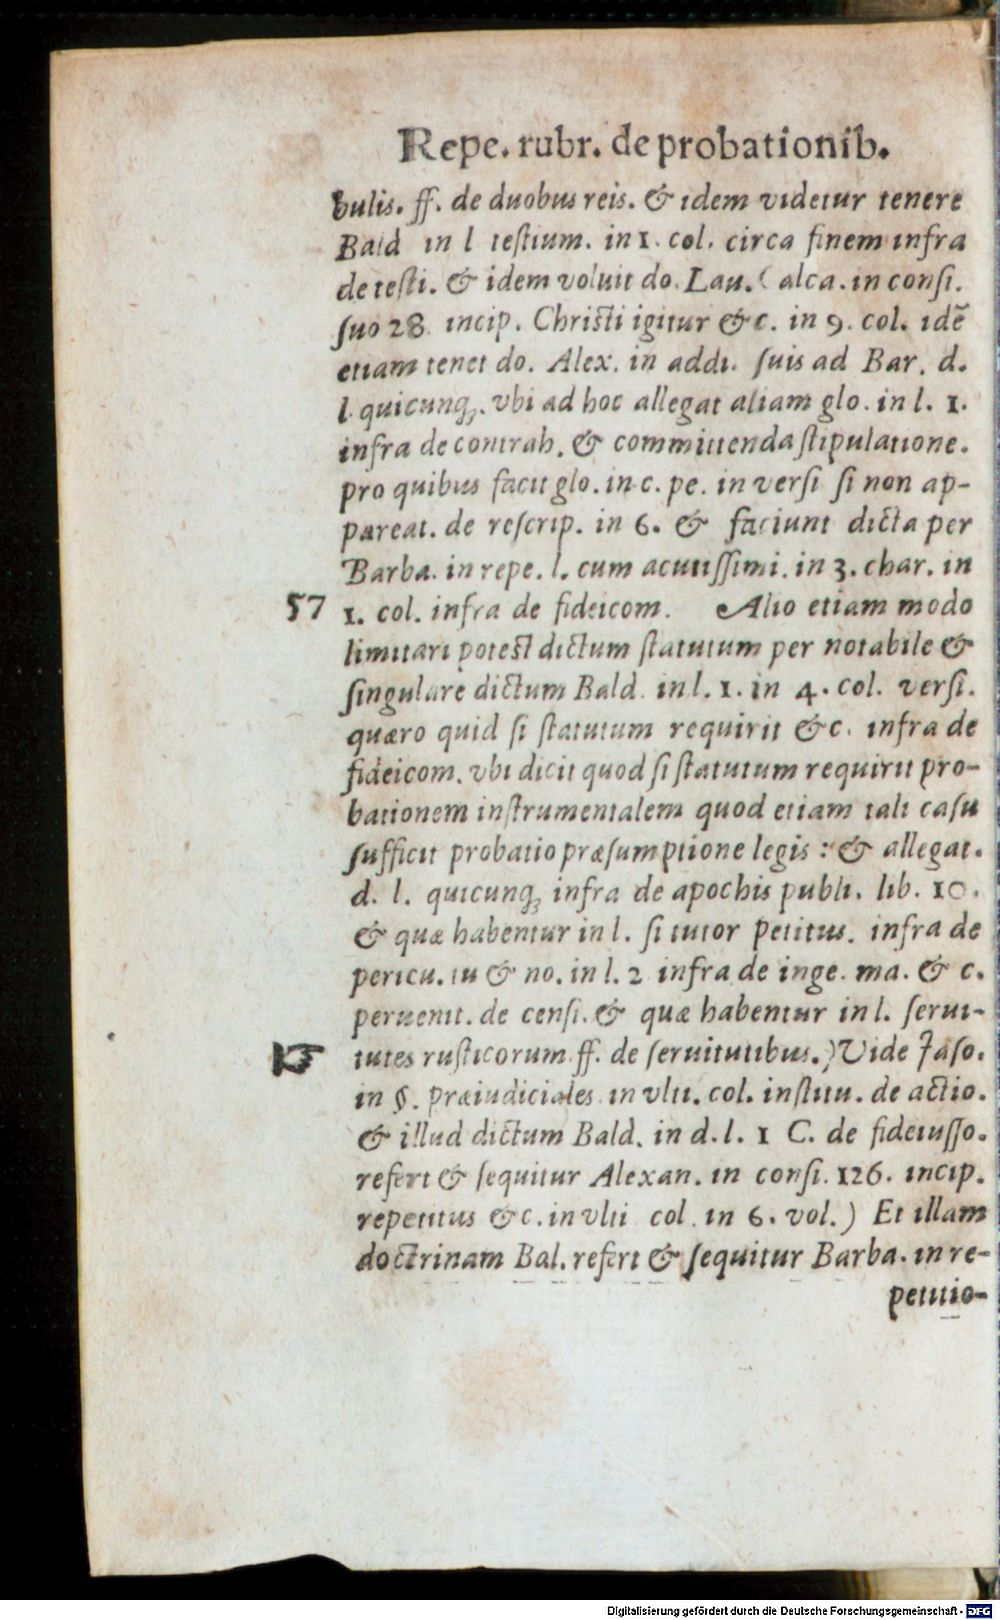 Repe. rubr. de probationib.
bulis. ff. de duobus reis. & idem videtur tenere
Bald in l testium. in 1. col. circa finem infra
de testi. & idem voluit do. Lau. Calca. in consi.
suo 28. incip. Christi igitur &c. in 9. col. idē
etiam tenet do. Alex. in addi. suis ad Bar. d.
l. quicunq;. vbi ad hoc allegat aliam glo. in l. 1.
infra de contrah. & committenda stipulatione.
pro quibus facit glo. in c. pe. in versi si non ap-
pareat. de rescrip. in 6. & faciunt dicta per
Barba. in repe. l. cum acutissimi. in 3. char. in
57 1. col. infra de fideicom. Alio etiam modo
limitari potest dictum statutum per notabile &
singulare dictum Bald. in l. 1. in 4. col. versi.
quæro quid si statutum requirit &c. infra de
fideicom. vbi dicit quod si statutum requirit pro-
bationem instrumentalem quod etiam tali casu
sufficit probatio præsumptione legis : & allegat.
d. l. quicunq; infra de apochis publi. lib. 10.
& quæ habentur in l. si tutor petitus. infra de
pericu. tu & no. in l. 2 infra de inge. ma. & c.
peruenit. de censi. & quæ habentur in l. serui-
☞ tutes rusticorum ff. de seruitutibus.) Vide Jaso.
in §. præiudiciales in vlti. col. institu. de actio.
& illud dictum Bald. in d. l. 1 C. de fideiusso.
refert & sequitur Alexan. in consi. 126. incip.
repetitus &c. in vlti col. in 6. vol.) Et illam
doctrinam Bal. refert & sequitur Barba. in re-
petitio-
Digitalisierung gefördert durch die Deutsche Forschungsgemeinschaft - DFG